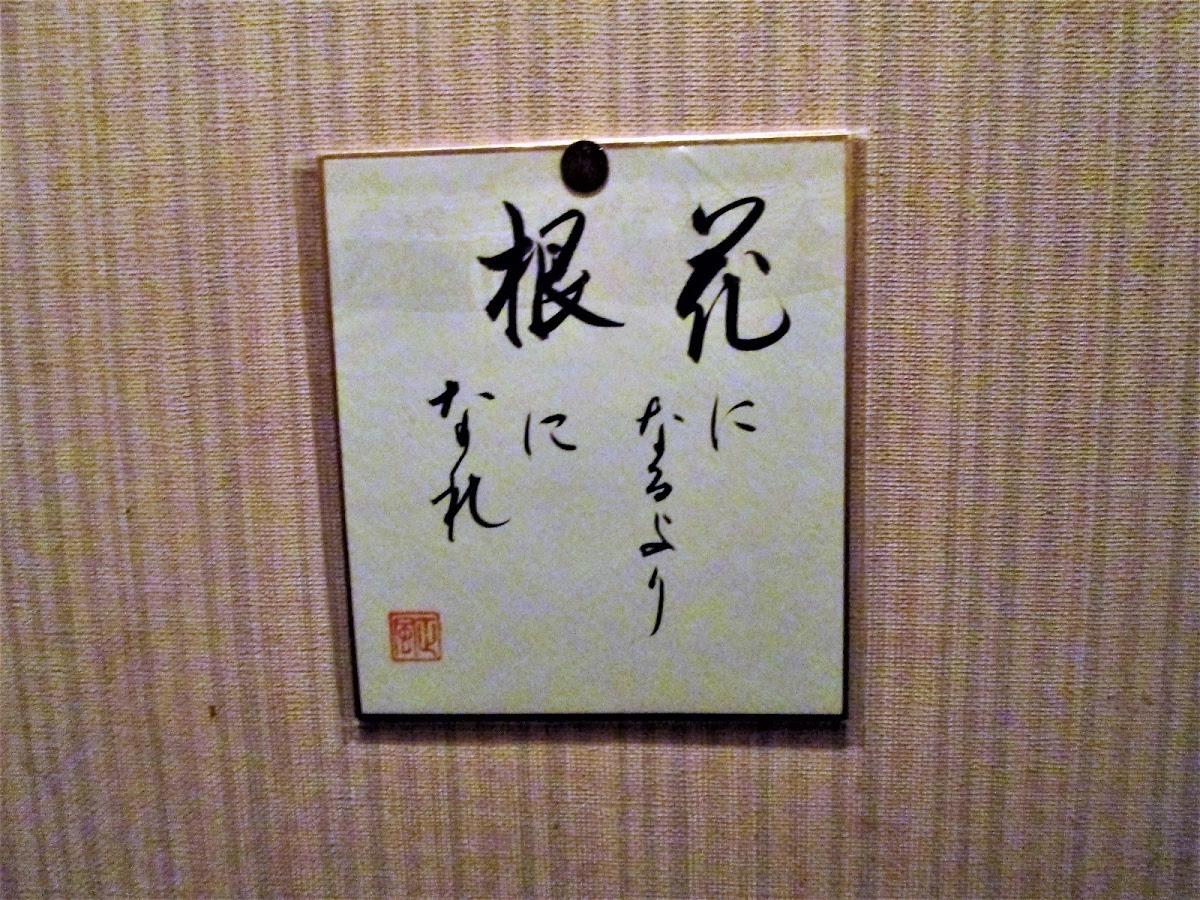 花に
なるより
根に
なれ